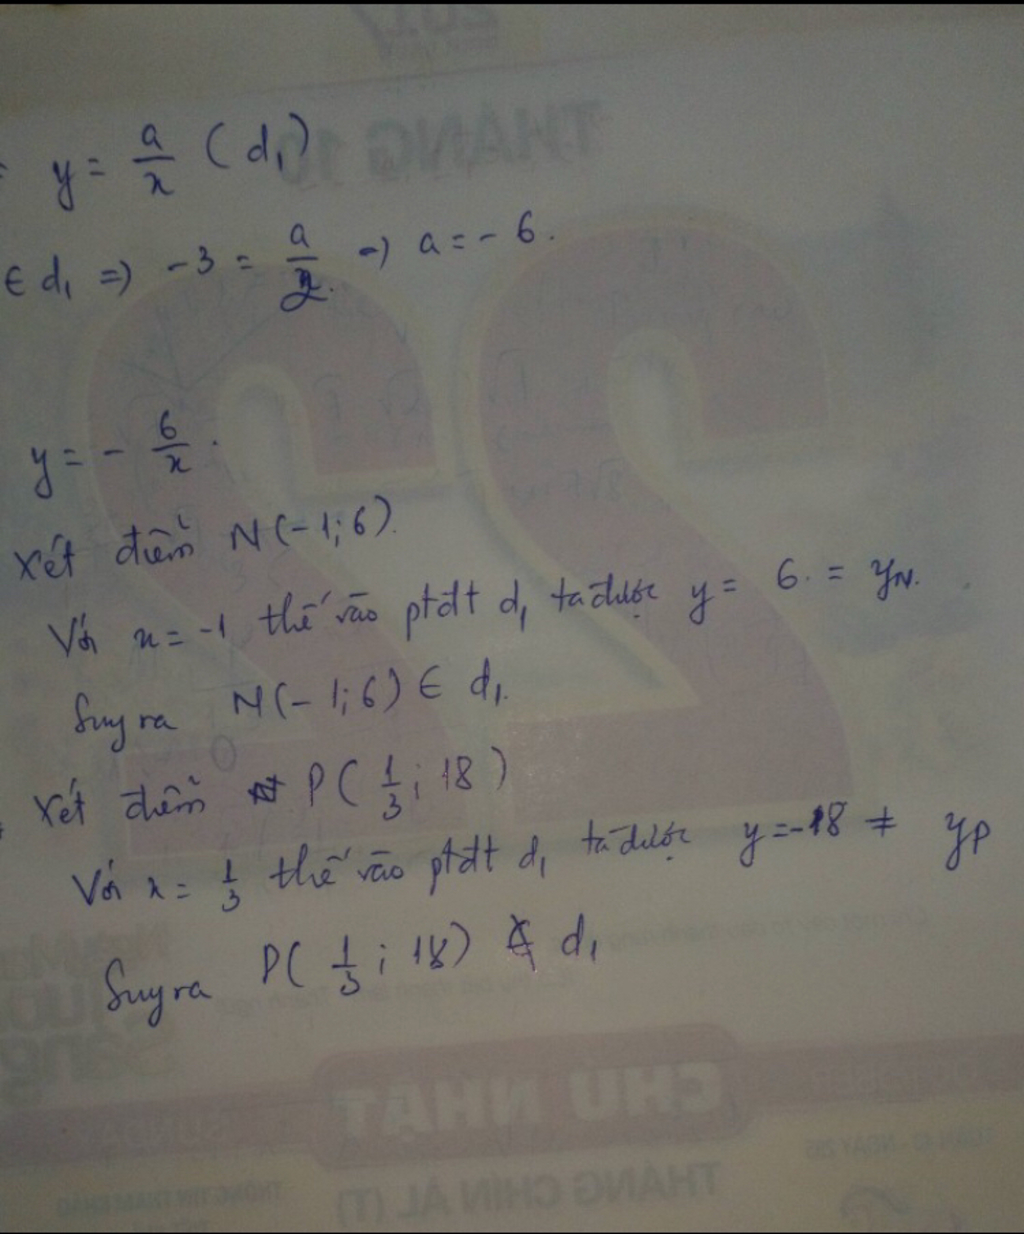 y = a/x (d₁)
∈ d₁ => -3 = a/2 -> a = - 6.
y = - 6/x.
Xét điểm N(-1;6).
Với x = -1 thế vào ptđt d₁ ta được y = 6 = yN.
Suy ra N(-1;6) ∈ d₁.
Xét điểm P(1/3; 18)
Với x = 1/3 thế vào ptđt d₁ ta được y = -18 ≠ yP
Suy ra P(1/3; 18) ∉ d₁
2017
THÁNG 10
22
CHỦ NHẬT
SUNDAY
THÁNG CHÍN ÂL (T)